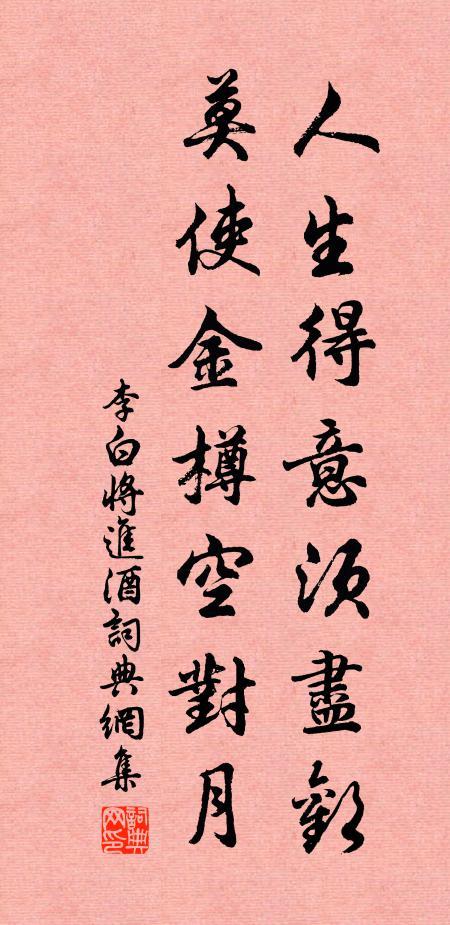 人生得意須盡歡
莫使金樽空對月
李白將進酒詞典網集
詞典网印